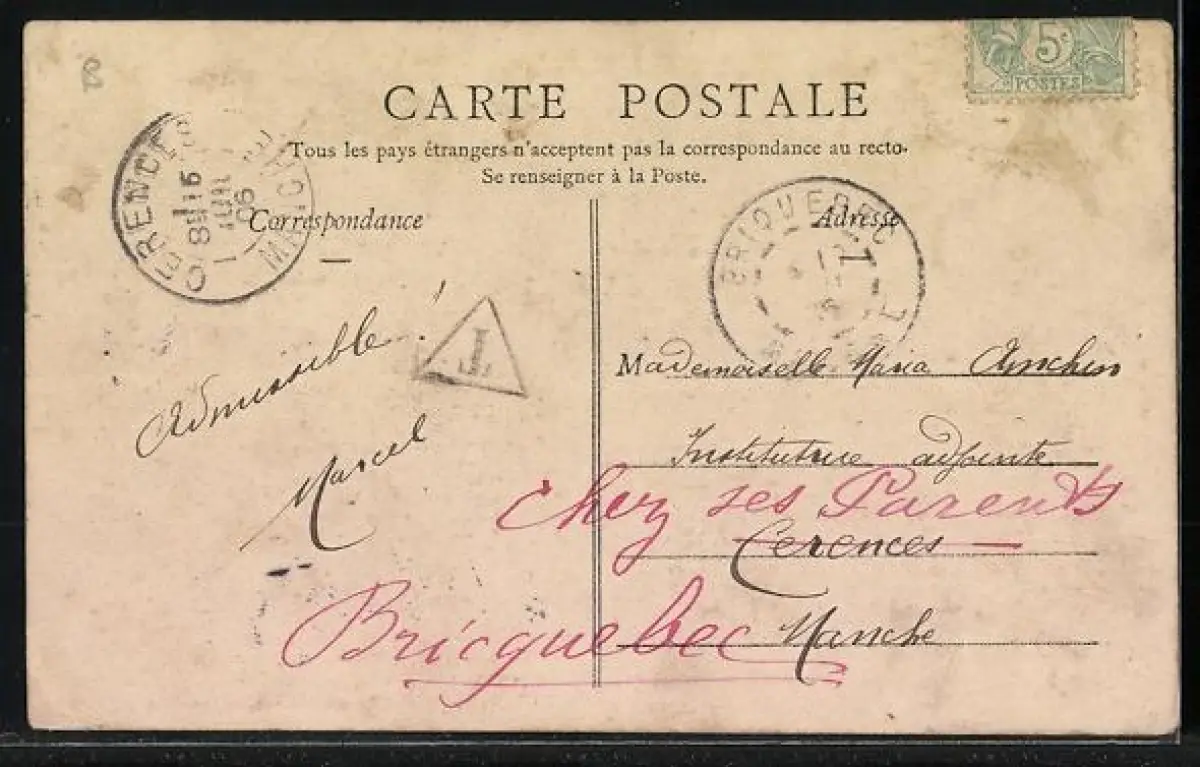 5c
POSTES
CARTE POSTALE
Tous les pays étrangers n'acceptent pas la correspondance au recto.
Se renseigner à la Poste.
CERENCES
MANCHE
15
JUIL
06
Correspondance
Adresse
BRICQUEBEC
T
Admissible!
Marcel
Mademoiselle Maria
Institutrice adjointe
Chez ses Parents
Cerences
Manche
Bricquebec